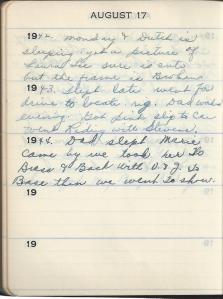 AUGUST 17
1942. Monday & Dutch is
sleeping. got a picture of
Laura. He sure is cute
but the frame is Broken
1943. Slept late went for
drive to locate rig. Dad works
evening. Got pink slip to car
went Riding with Stevens.
1944. Dad slept. Marie
came by we took her to
Brass & Back with V. & J. to
Base then we went to show.
19
19